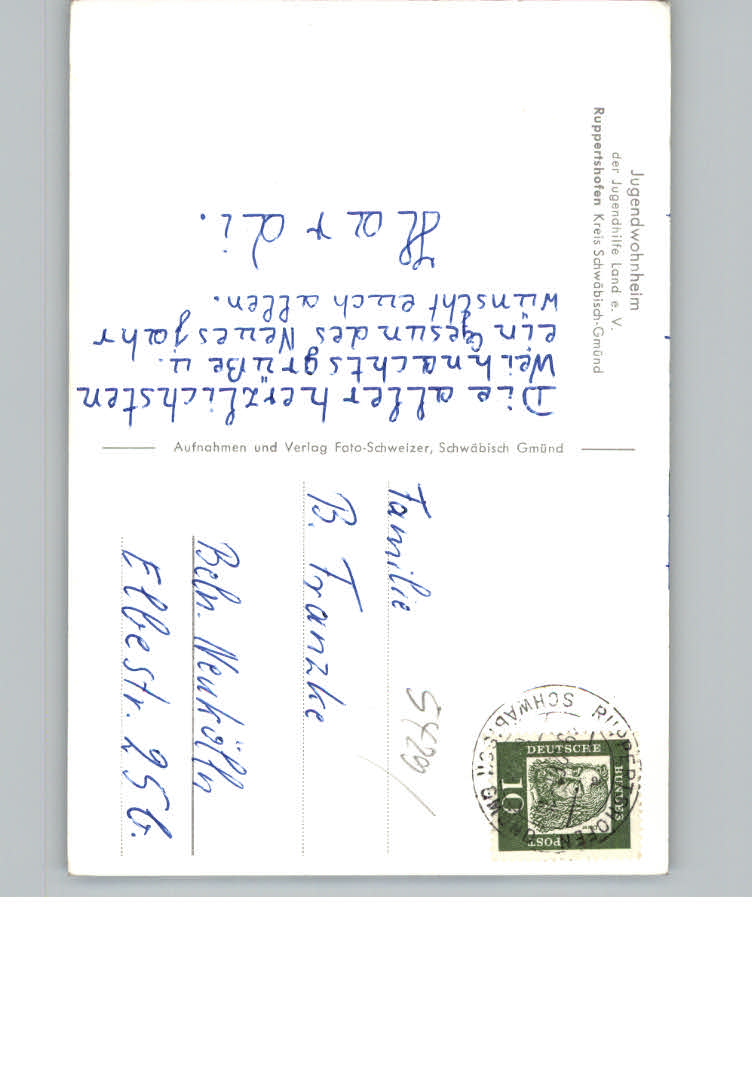 Jugendwohnheim
der Jugendhilfe Land e. V.
Ruppertshofen Kreis Schwäbisch-Gmünd
Die aller herzlichsten
Weihnachtsgrüße u.
ein Gesundes Neuesjahr
wünscht euch allen.
Hardi.
Aufnahmen und Verlag Foto-Schweizer, Schwäbisch Gmünd
Familie
B. Franzke
Beln. Neukölln
Elbestr. 25b.
DEUTSCHE
BUNDES
POST
10
RUPPERTSHOFEN
SCHWÄB